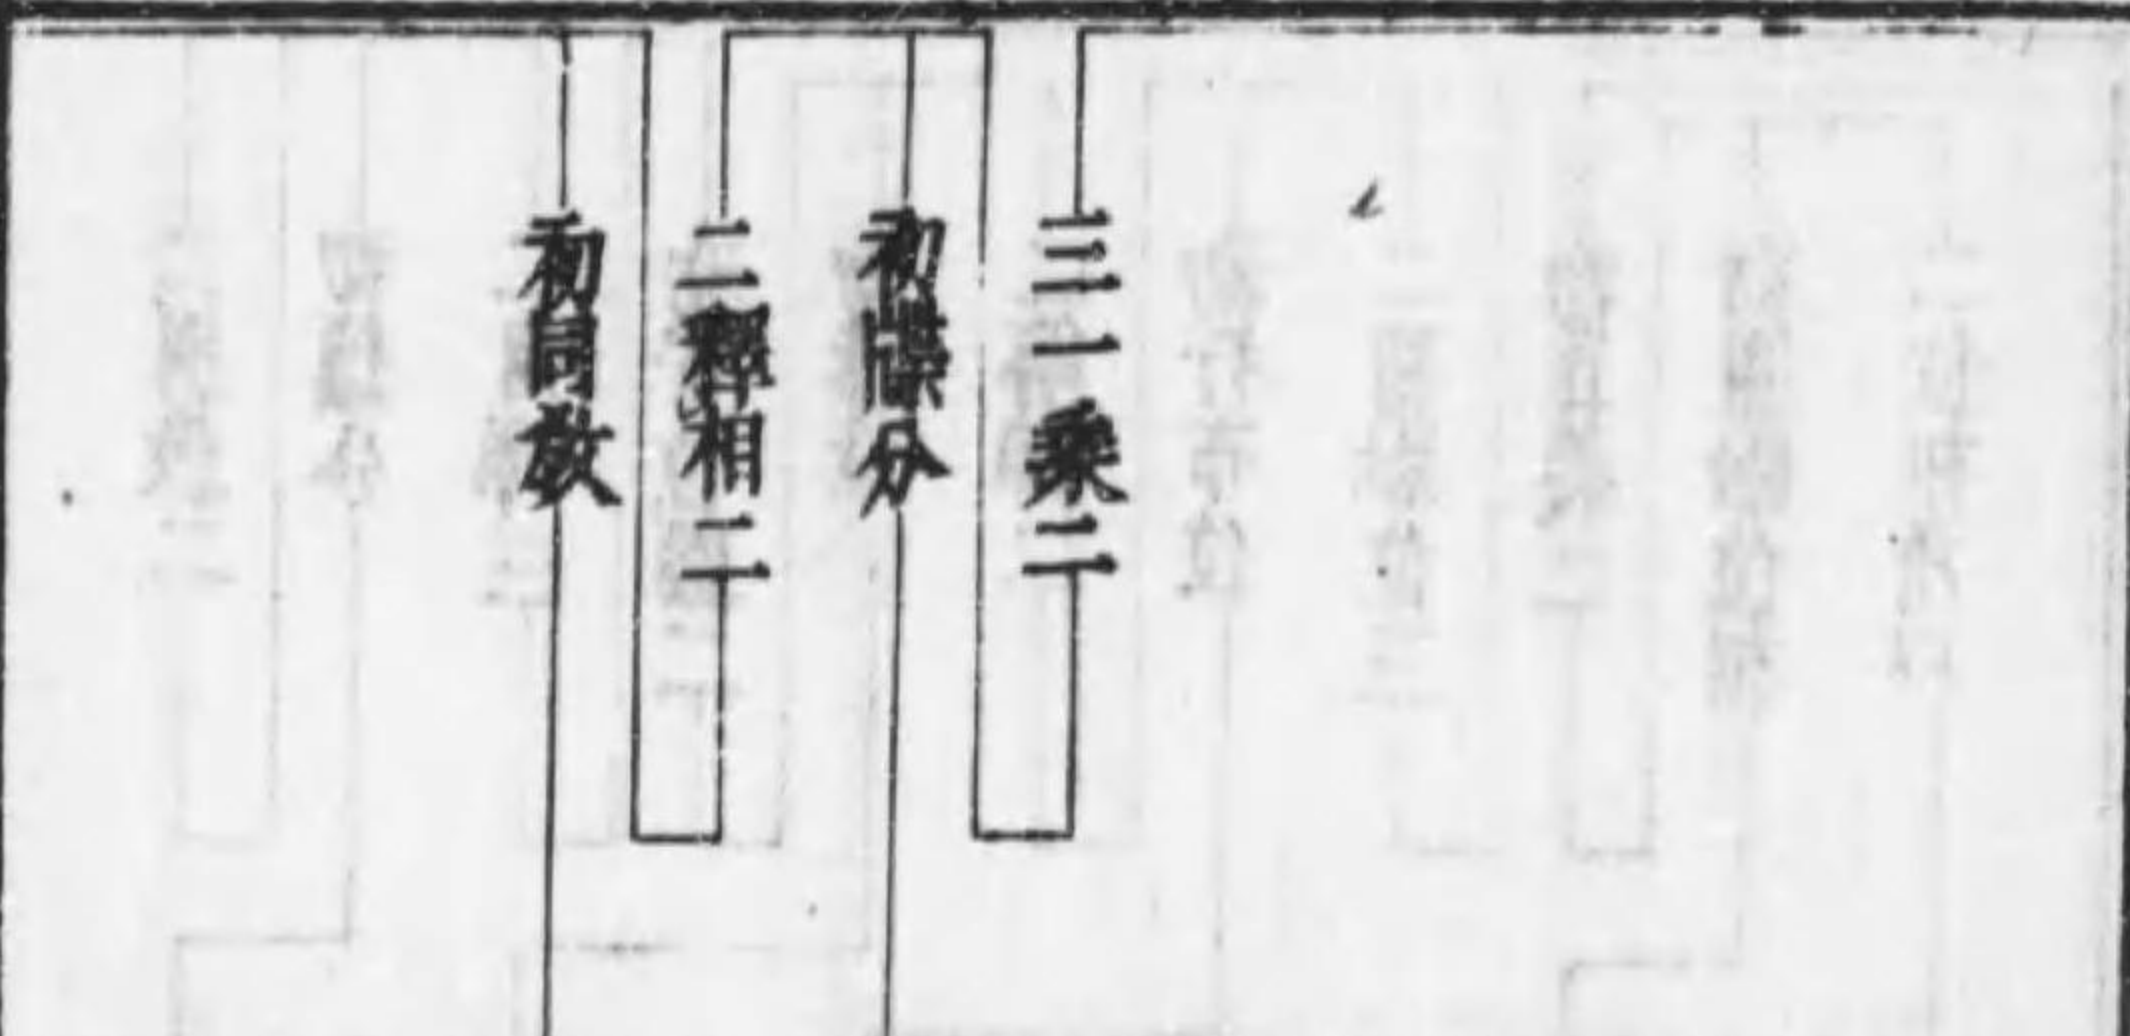 三一乘二
初牒分
二釋相二
初同教